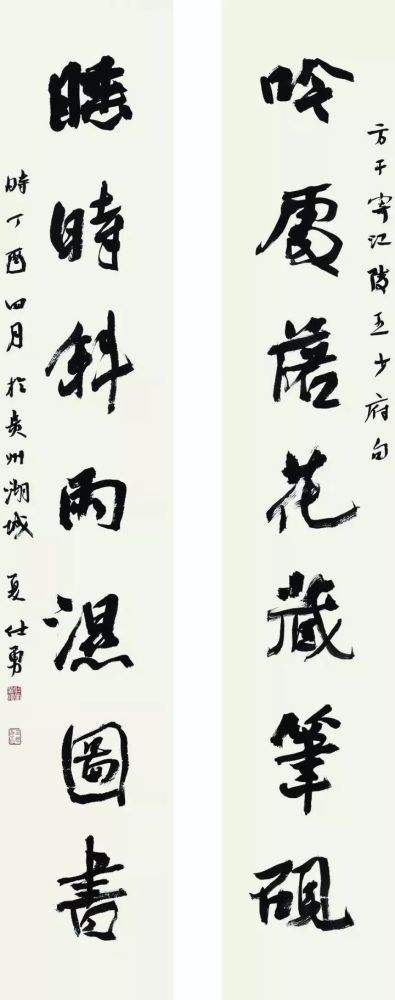 方干寄江陵王少府句
吟處落花藏筆硯
睡時斜雨濕圖書
時丁酉四月於貴州湖城 夏仕勇